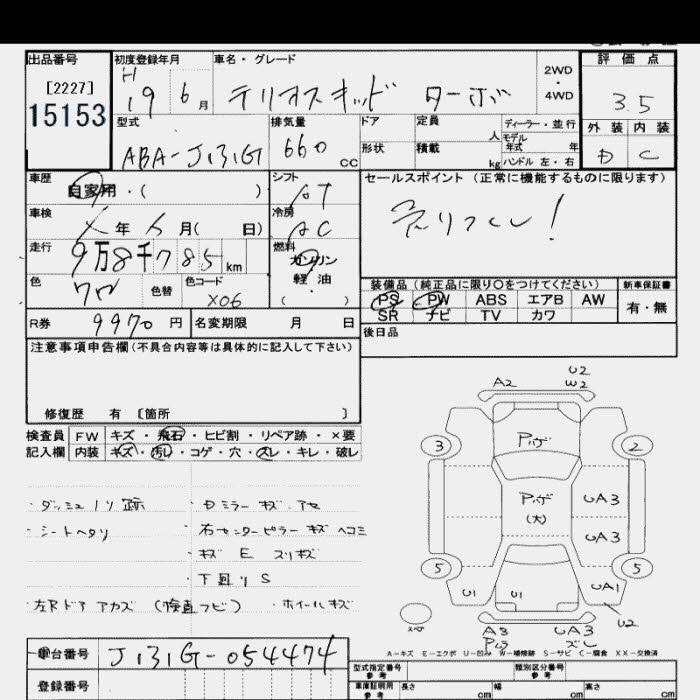 出品番号 初度登録年月 車名・グレード 評価点
[2227] H 2WD
15153 19 6 月 テリオスキッド ターボ ・ 3.5
4WD
型式 排気量 ドア 定員 ディーラー・並行 外装 内装
人 モデル年式 年
ABA-J131G 660 cc 形状 積載 kg ハンドル 左・右 D C
車歴 シフト セールスポイント (正常に機能するものに限ります)
自家用・( ) AT 売りつくし!
車検 冷房
年 月( 日) AC
走行 燃料
9万8千785 km ガソリン
色 色替 色コード 軽油 装備品 (純正品に限り○をつけてください) 新車保証書
X06 ( ) PS PW ABS エアB AW 有・無
SR ナビ TV カワ
R券 9970 円 名変期限 月 日 後日品
注意事項申告欄(不具合内容等は具体的に記入して下さい)
修復歴 有 〔箇所 〕
検査員 FW キズ・飛石・ヒビ割・リペア跡・×要
記入欄 内装 キズ・汚レ・コゲ・穴・スレ・キレ・破レ
A2 U2
W2
3 2
・ダッシュノリ跡 ・Dミラーキズ.アセ
・シートヘタリ ・右センターピラーキズヘコミ
・キズ E スリキズ
・下回りS
・左Rドアアカズ(検査フビ) ・ホイールキズ
(大) UA3
UA3
5 5
U1 U1 UA1
U2
A3 UA3
ズレ
A-キズ E-エクボ U-凹み W-補修跡 S-サビ C-腐食 XX-交換済
車台番号 J131G-054474
登録番号
型式指定番号 参考 類別区分番号 参考
車庫証明用 参考 長さ cm 幅 cm 高さ cm